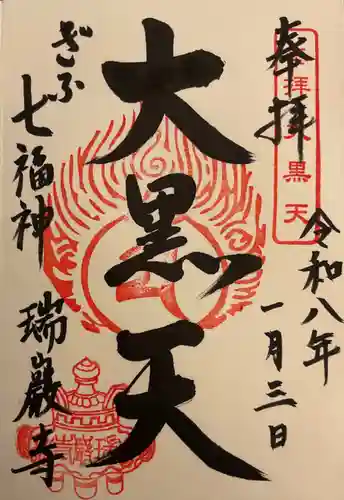 奉拝
令和八年
一月三日
大黒天
ぎふ
七福神
瑞巖寺